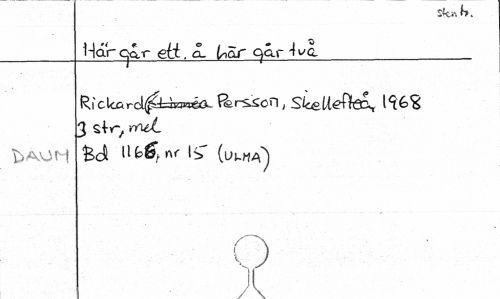 stenb.
Här går ett, å här går två
Rickard (Linnéa Persson, Skellefteå, 1968
3 str, mel
DAUM Bd 1166, nr 15 (ULMA)